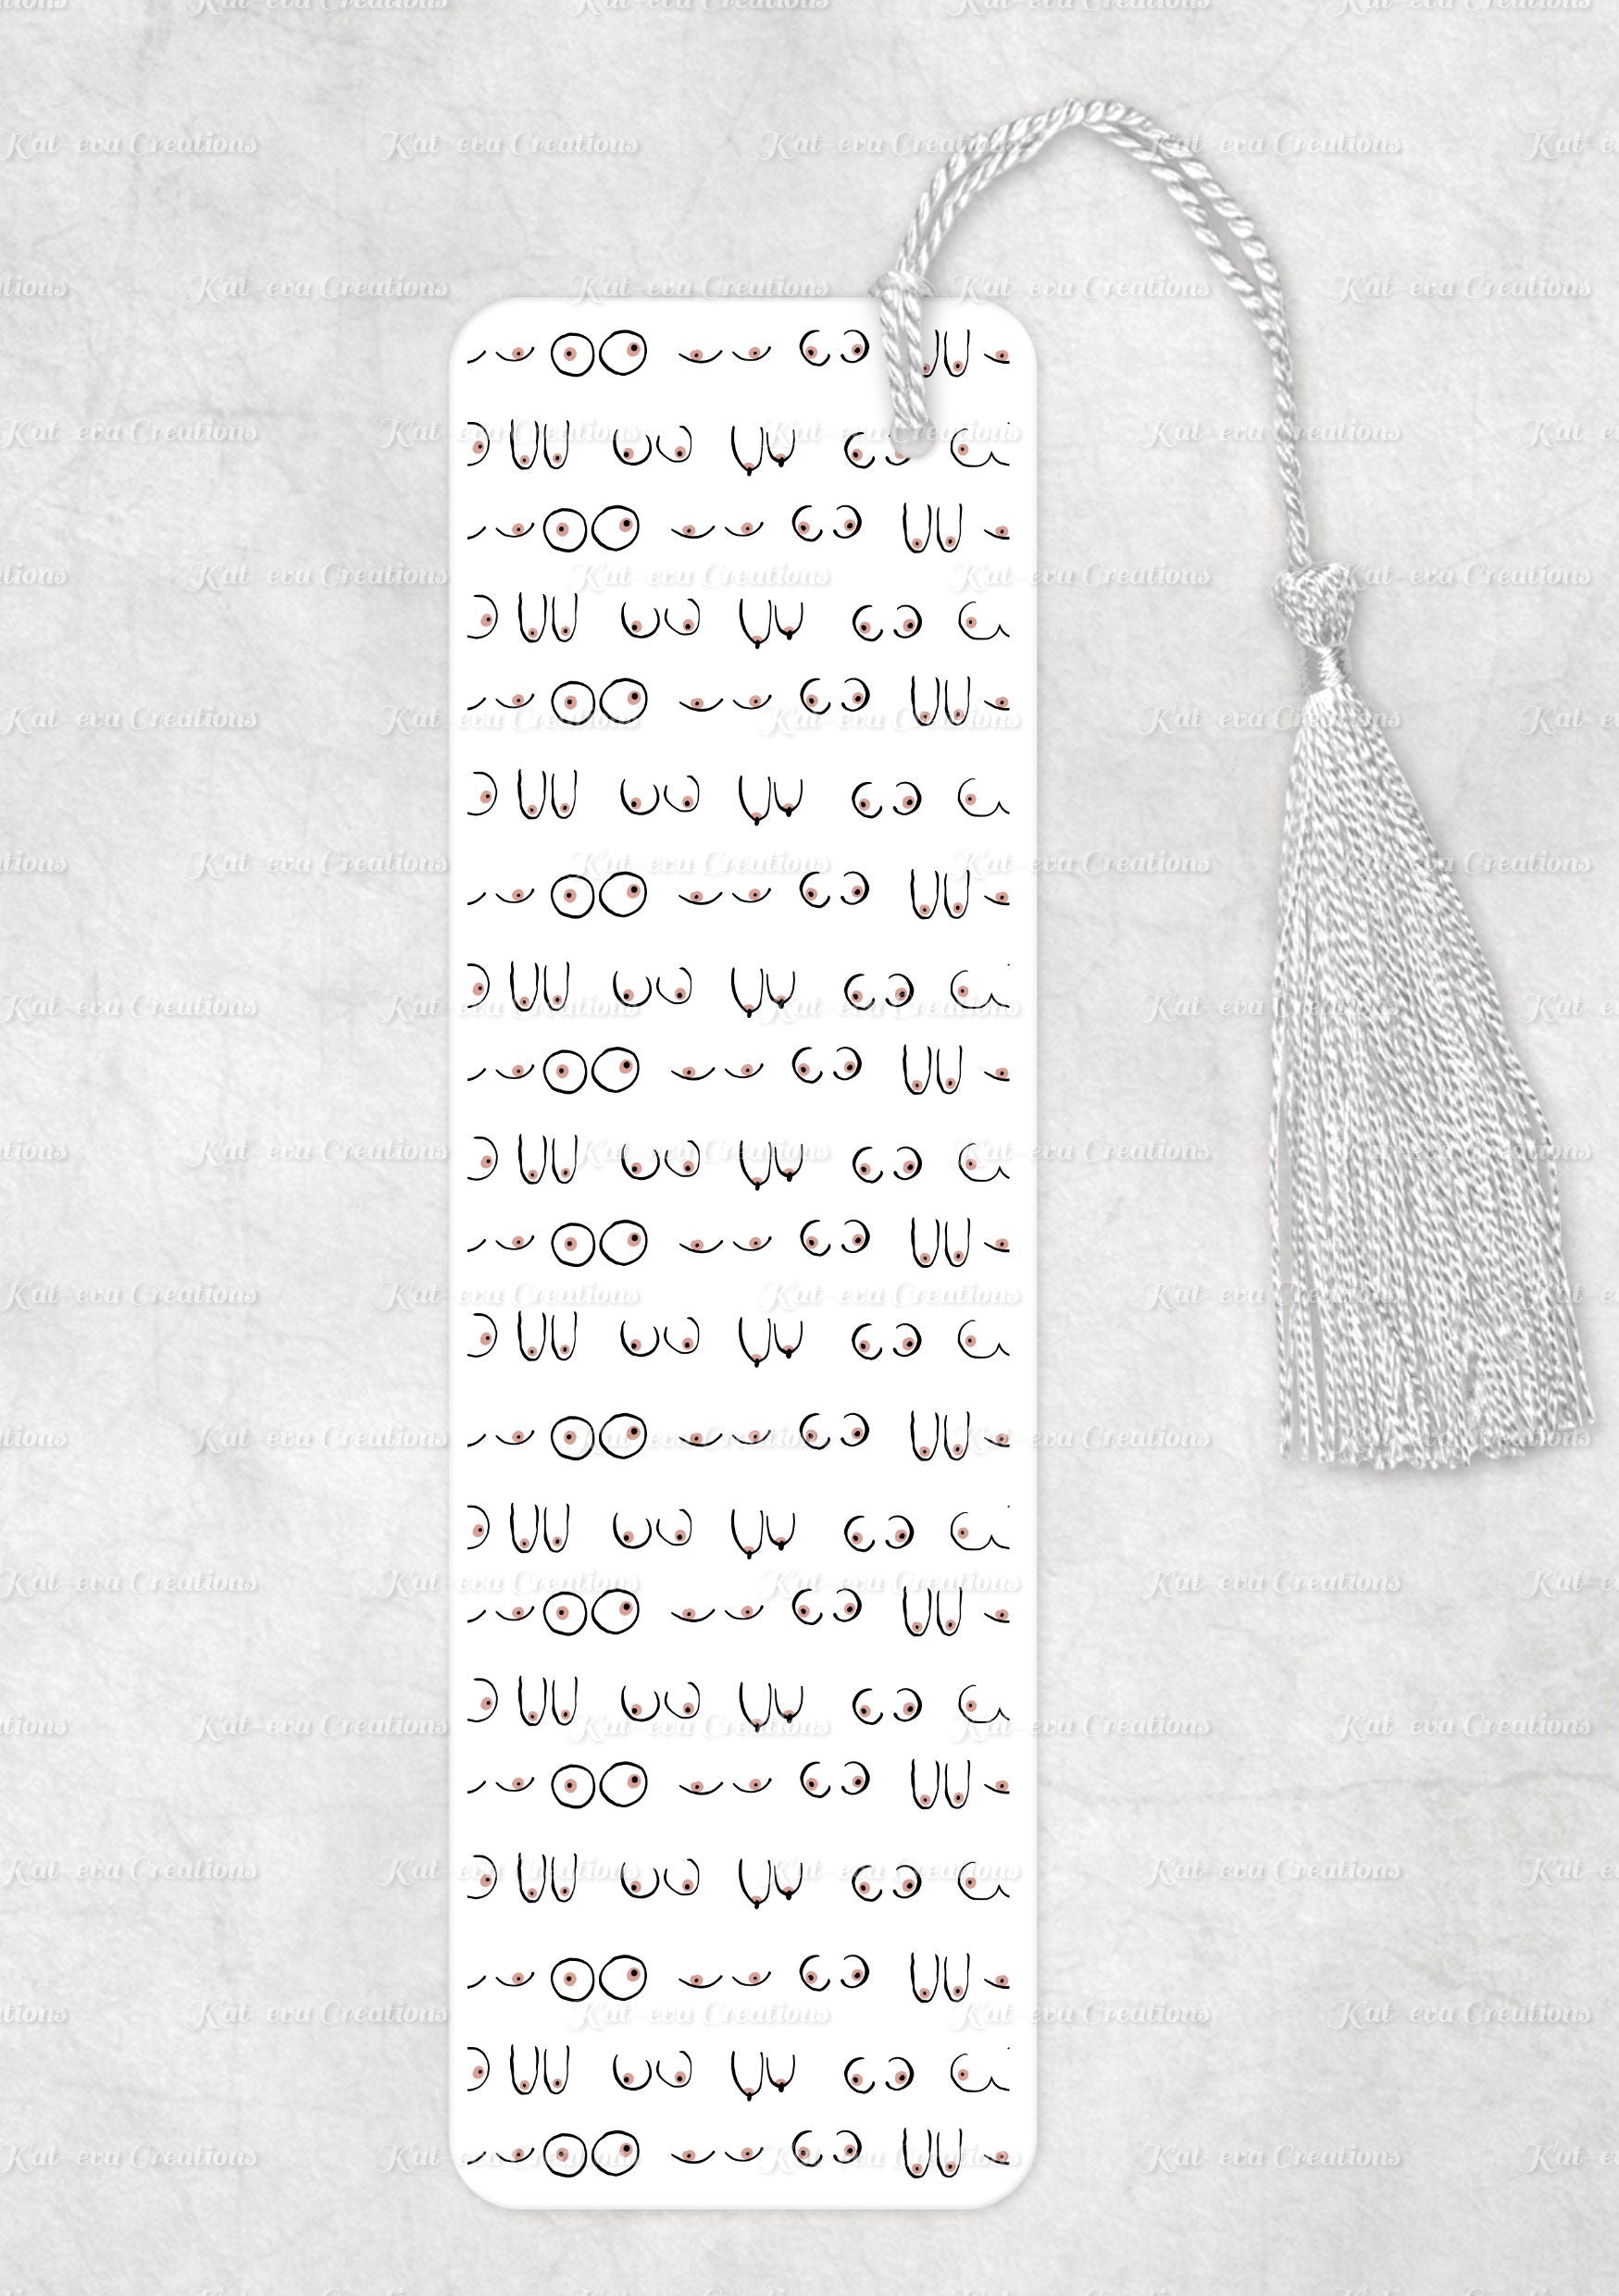 Kat-eva Creations